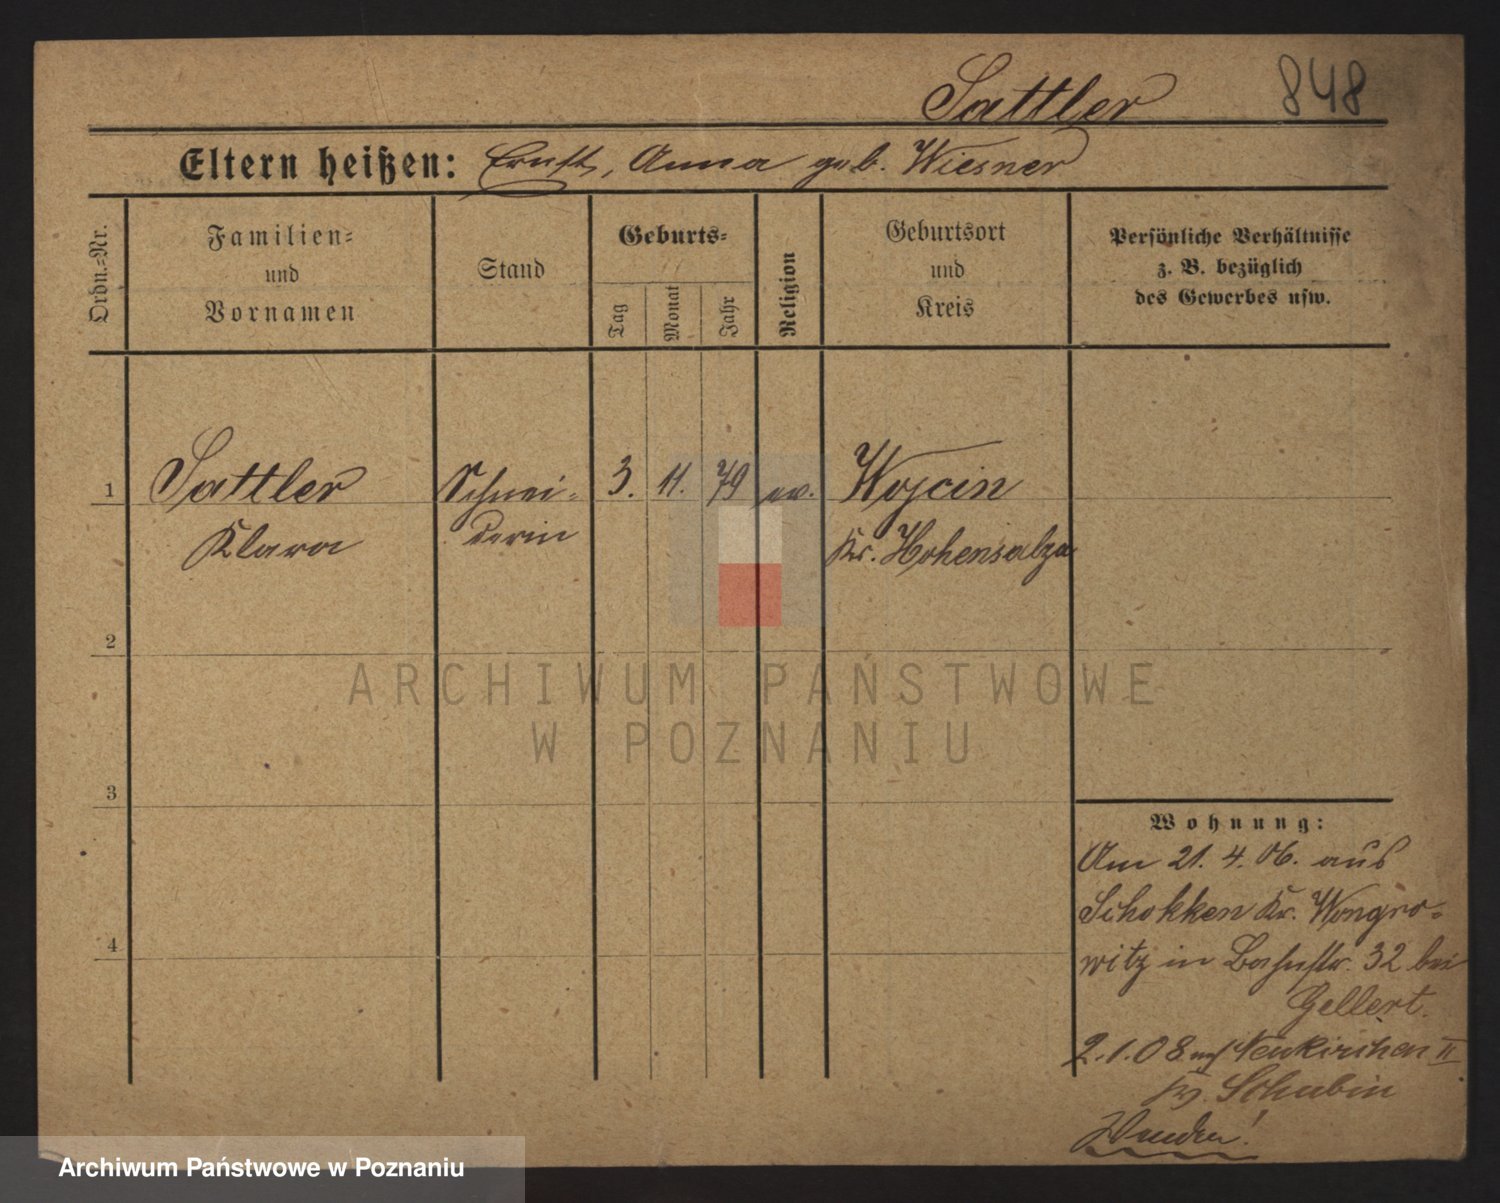 Sattler 848
Eltern heißen: Ernst, Anna geb. Wiesner
Ordn.-Nr.
Familien-
und
Vornamen
Stand
Geburts-
Tag
Monat
Jahr
Religion
Geburtsort
und
Kreis
Persönliche Verhältnisse
z. B. bezüglich
des Gewerbes usw.
1 Sattler Schnei- 3. 11. 79 ev. Wojcin
Klara derin Kr. Hohensalza
2
3
4
ARCHIWUM PAŃSTWOWE
W POZNANIU
Wohnung:
Am 21. 4. 06. aus
Schokken Kr. Wongro-
witz in Bahnstr. 32 bei
Gellert.
2.1.08 nach Neukirchen II
Kr. Schubin
Wenden!
Archiwum Państwowe w Poznaniu